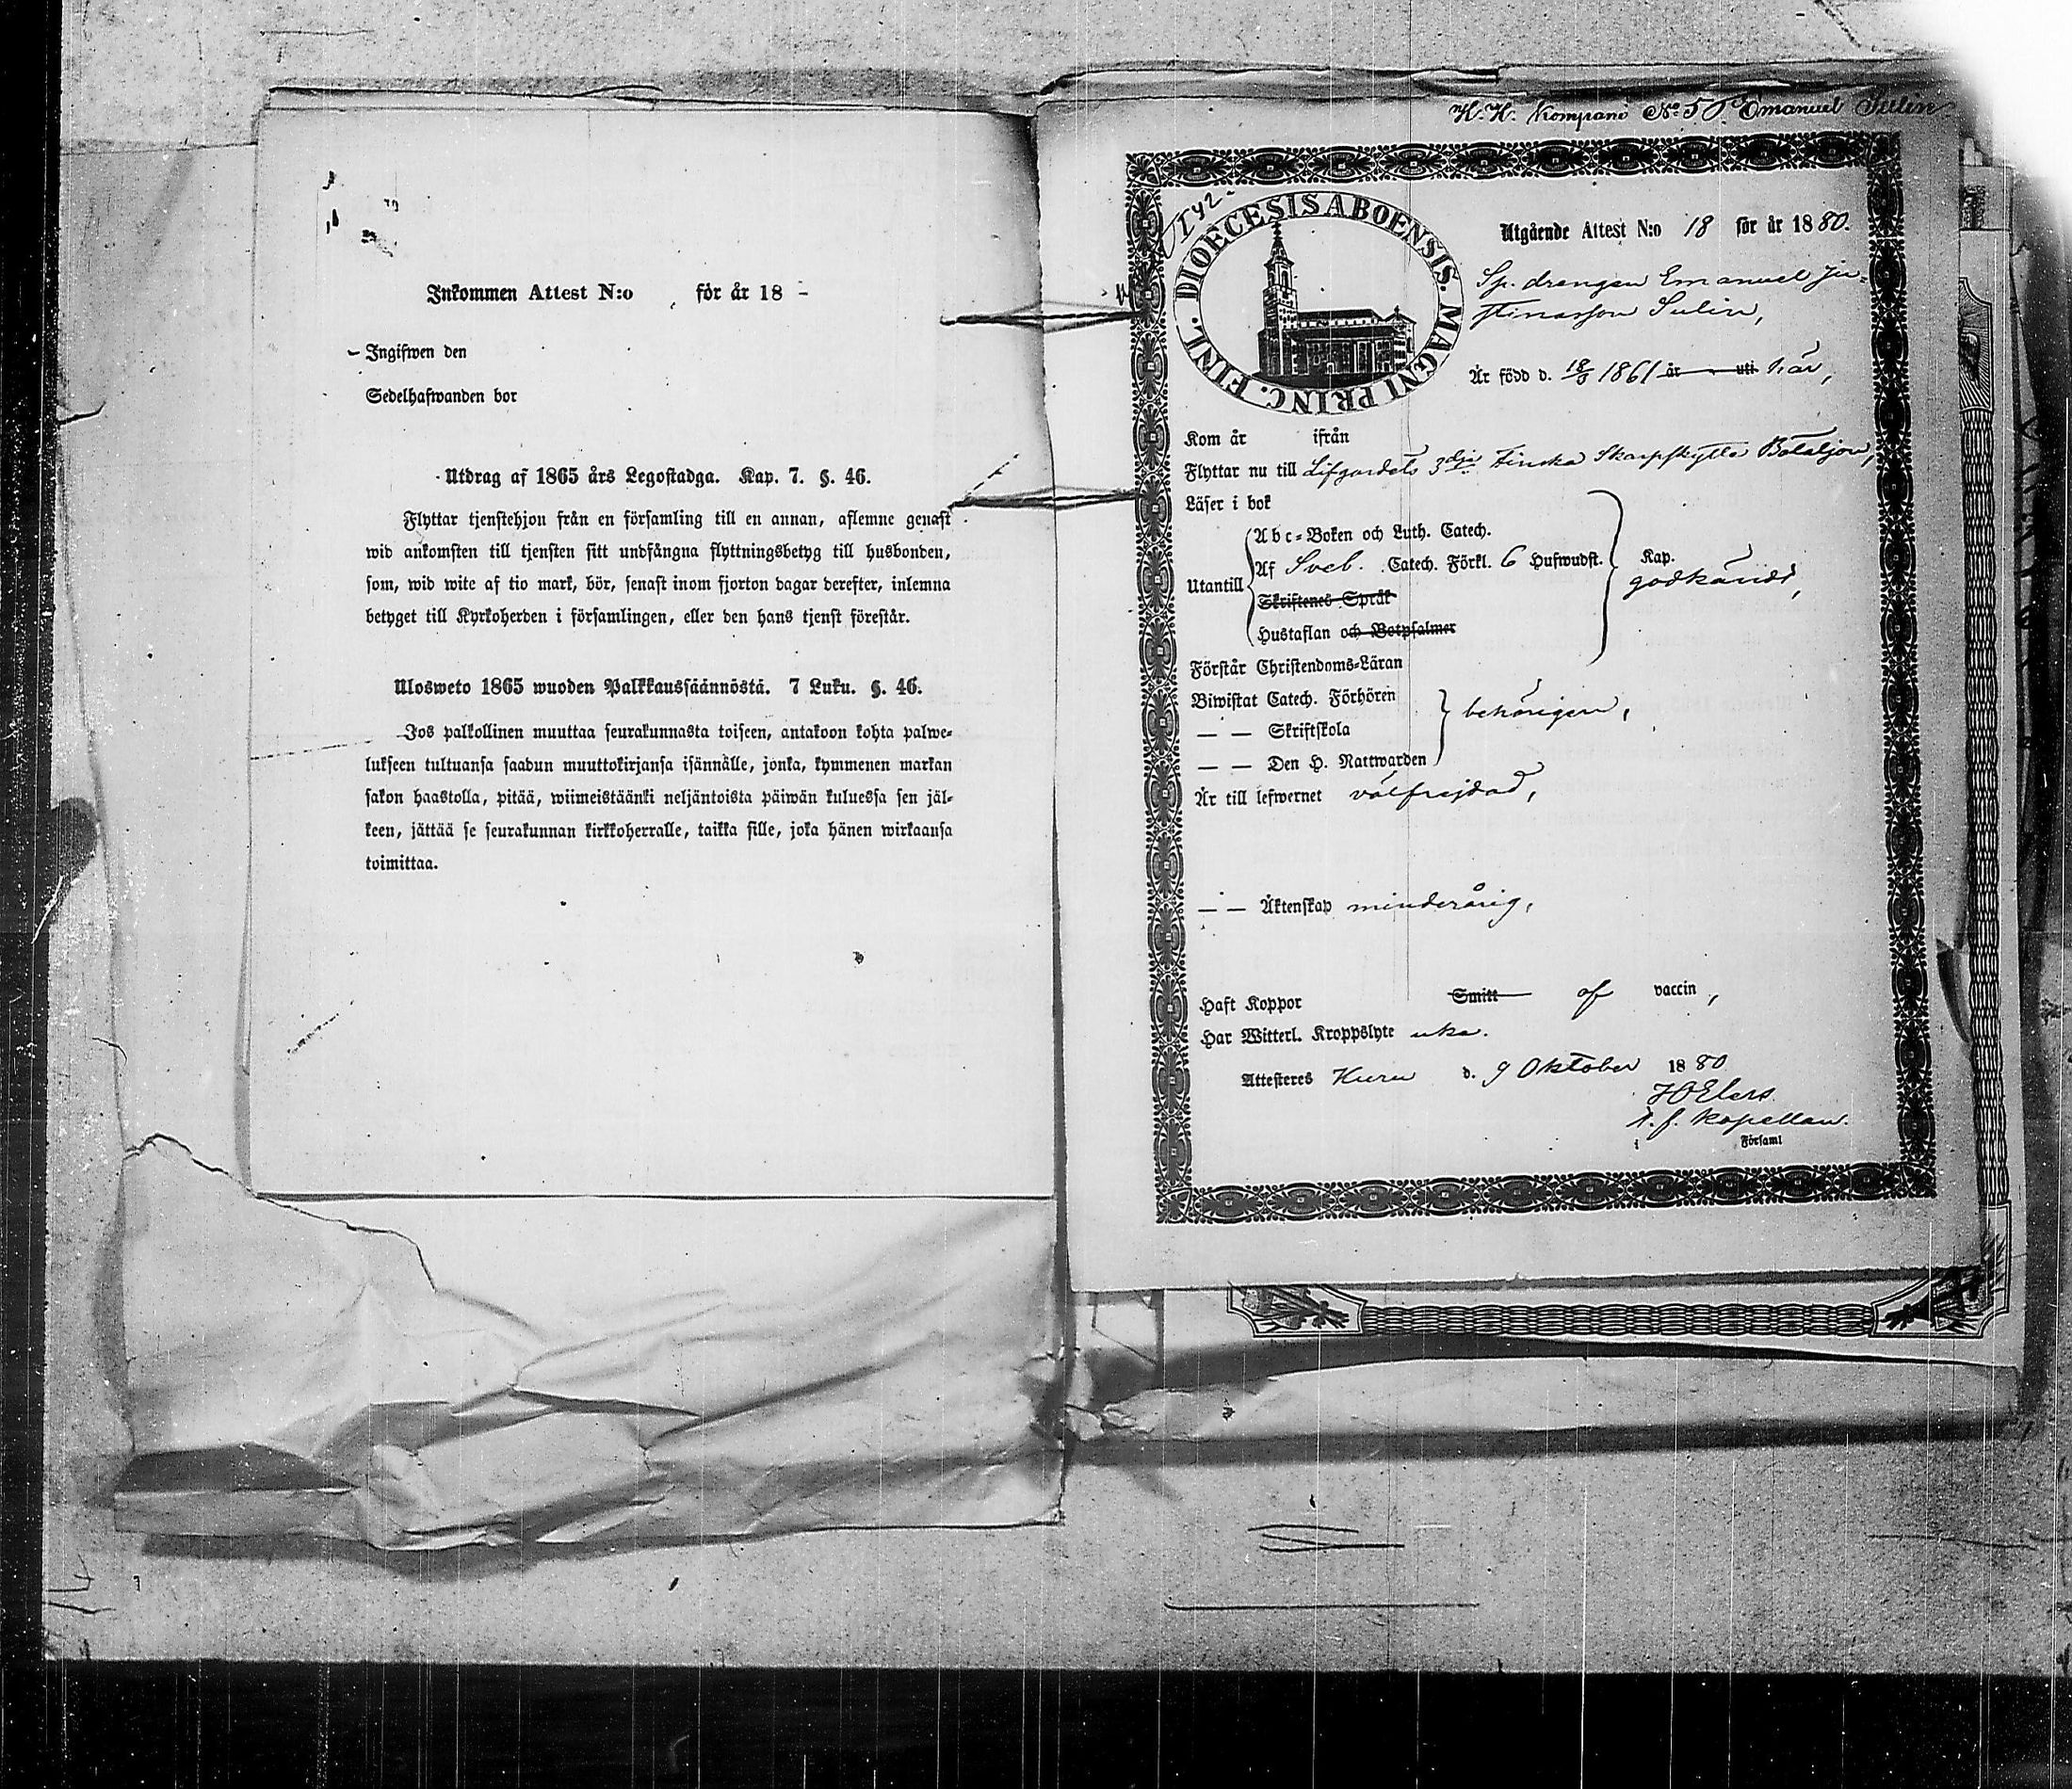 Inkommen Attest N:o för år 18 -
Ingifwen den
Sedelhafwanden bor
Utdrag af 1865 års Legostadga. Kap. 7. §. 46.
Flyttar tjenstehjon från en församling till en annan, aflemne genast
wid ankomsten till tjensten sitt undfångna flyttningsbetyg till husbonden,
som, wid wite af tio mark, bör, senast inom fjorton dagar derefter, inlemna
betyget till Kyrkoherden i församlingen, eller den hans tjenst förestår.
Ulosweto 1865 wuoden Palkkaussäännöstä. 7 Luku. §. 46.
Jos palkollinen muuttaa seurakunnasta toiseen, antakoon kohta palwe-
lukseen tultuansa saadun muuttokirjansa isännälle, jonka, kymmenen markan
sakon haastolla, pitää, wiimeistäänki neljäntoista päiwän kuluessa sen jäl-
keen, jättää se seurakunnan kirkkoherralle, taikka sille, joka hänen wirkaansa
toimittaa.
H. H. Kompani No 50. Emanuel Sulin
DIOECESIS ABOENSIS. MAGNI PRINC. FINL.
Utgående Attest N:o 18 för år 1880.
Sp. drengen Emanuel Ju-
stinasson Sulin,
Är född d. 18/3 1861 år uti här,
Kom år ifrån
Flyttar nu till Lifgardets 3dje Finska Skarpskytte Bataljon,
Läser i bok
Abc-Boken och Luth. Catech.
Utantill Af Sveb. Catech. Förkl. 6 Hufwudst. Kap.
godkändt,
Skriftenes Språk
Hustaflan och Botpsalmer
Förstår Christendoms-Läran
Biwistat Catech. Förhören
behörigen,
— — Skriftskola
— — Den H. Nattwarden
Är till lefwernet välfrejdad,
— — Äktenskap minderårig,
Haft Koppor Smitt af vaccin,
Har Witterl. Kroppslyte icke.
Attesteres Kuru d. 9 Oktober 1880
HO Elers
t. f. kapellan.
i Församl